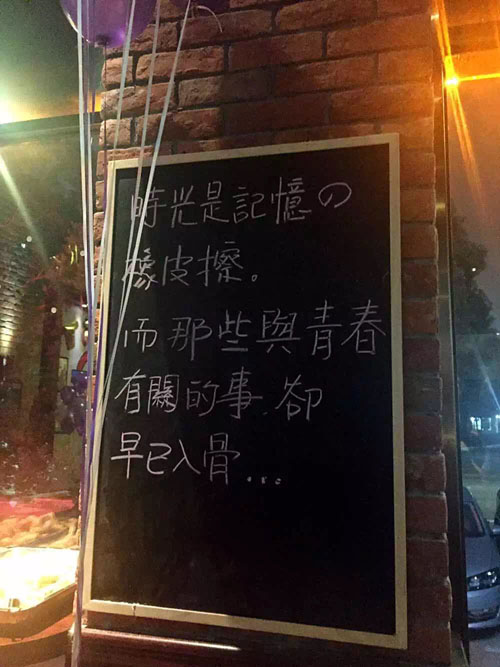 時光是記憶の
橡皮擦。
而那些與青春
有關的事.卻
早已入骨...